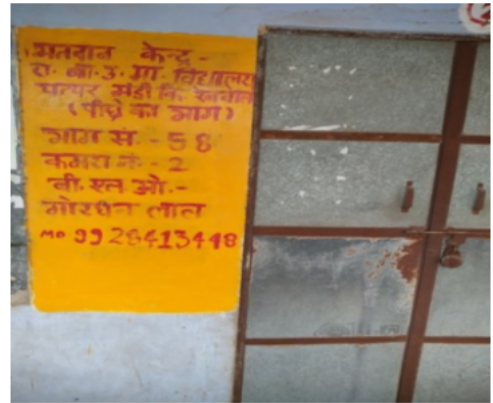 मतदान केन्द्र -
रा. बा. उ. मा. विद्यालय
पत्थर मंडी कि
(पीछे का भाग)
भाग सं. - 58
कमरा नं. - 2
बी. एल. ओ. -
गोरधन लाल
MO 9928413448